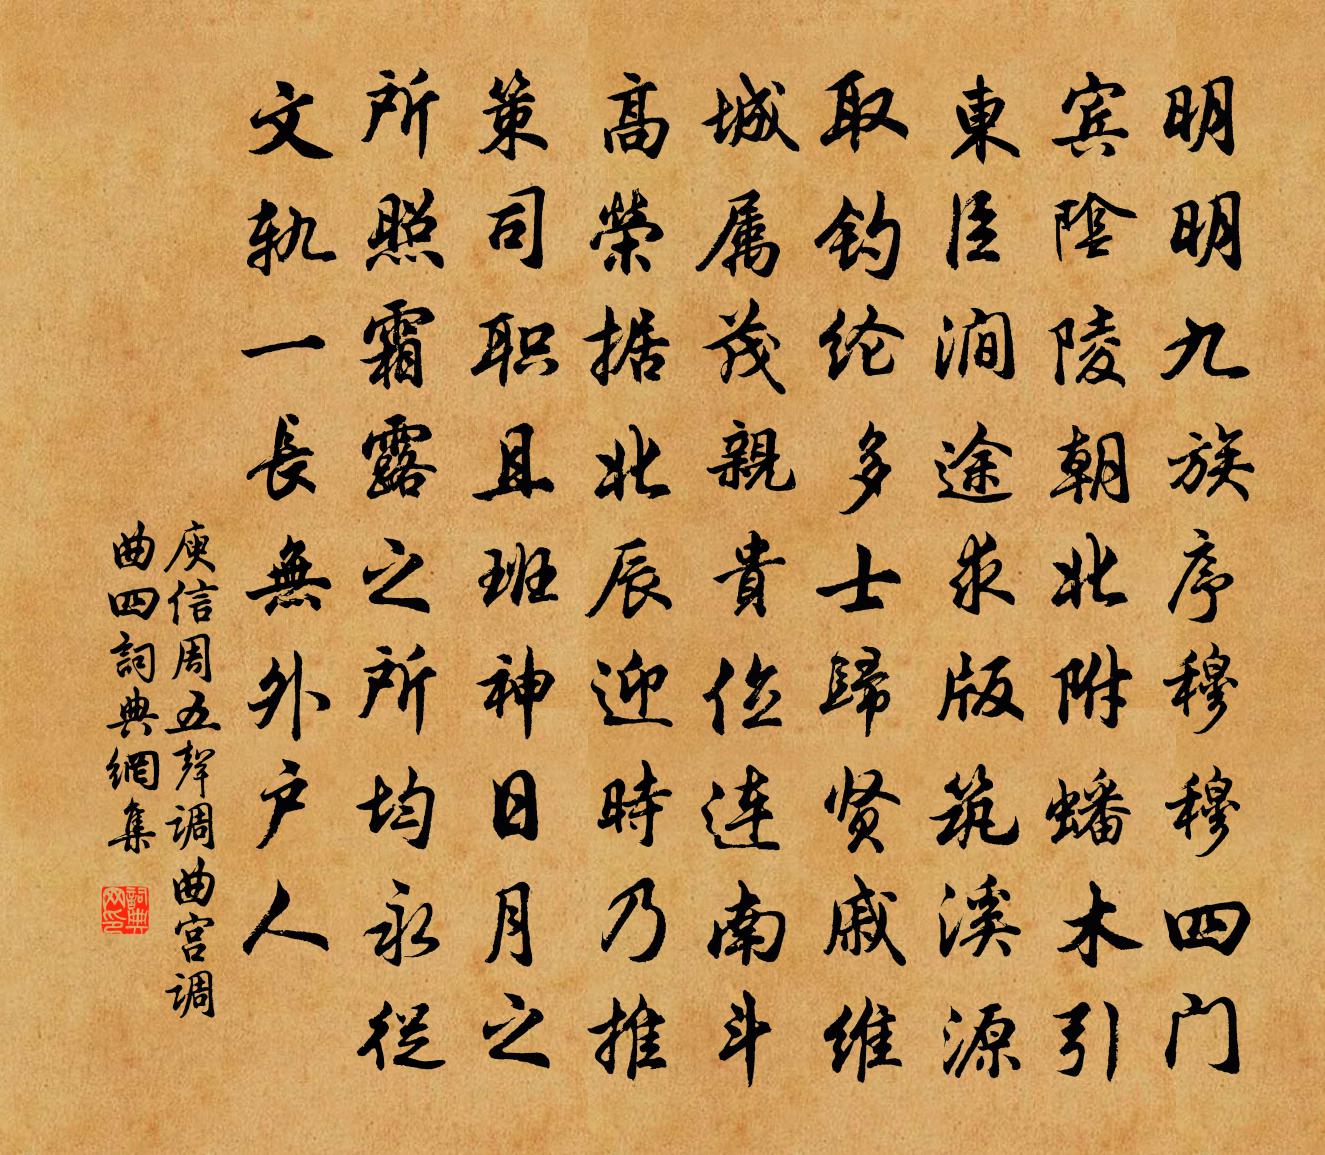 明明九族序穆穆四门
宾陰陵朝北附蟠木引
東臣澗途求版筑溪源
取钓纶多士歸贤戚维
城属茂親貴位連南斗
高榮据北辰迎時乃推
策司职且班神日月之
所照霜露之所均永從
文軌一長無外户人
庾信周五聲调曲宫調
曲四詞典網集